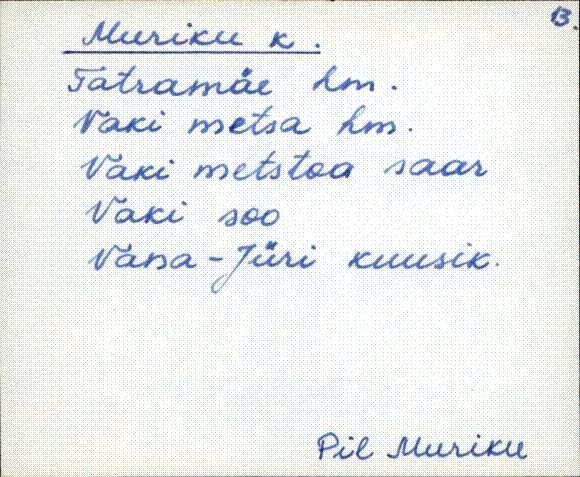 13.
Muriku k.
Tatramäe hm.
Vaki metsa hm.
Vaki metstoa saar
Vaki soo
Vana-Jüri kuusik.
Pil Muriku